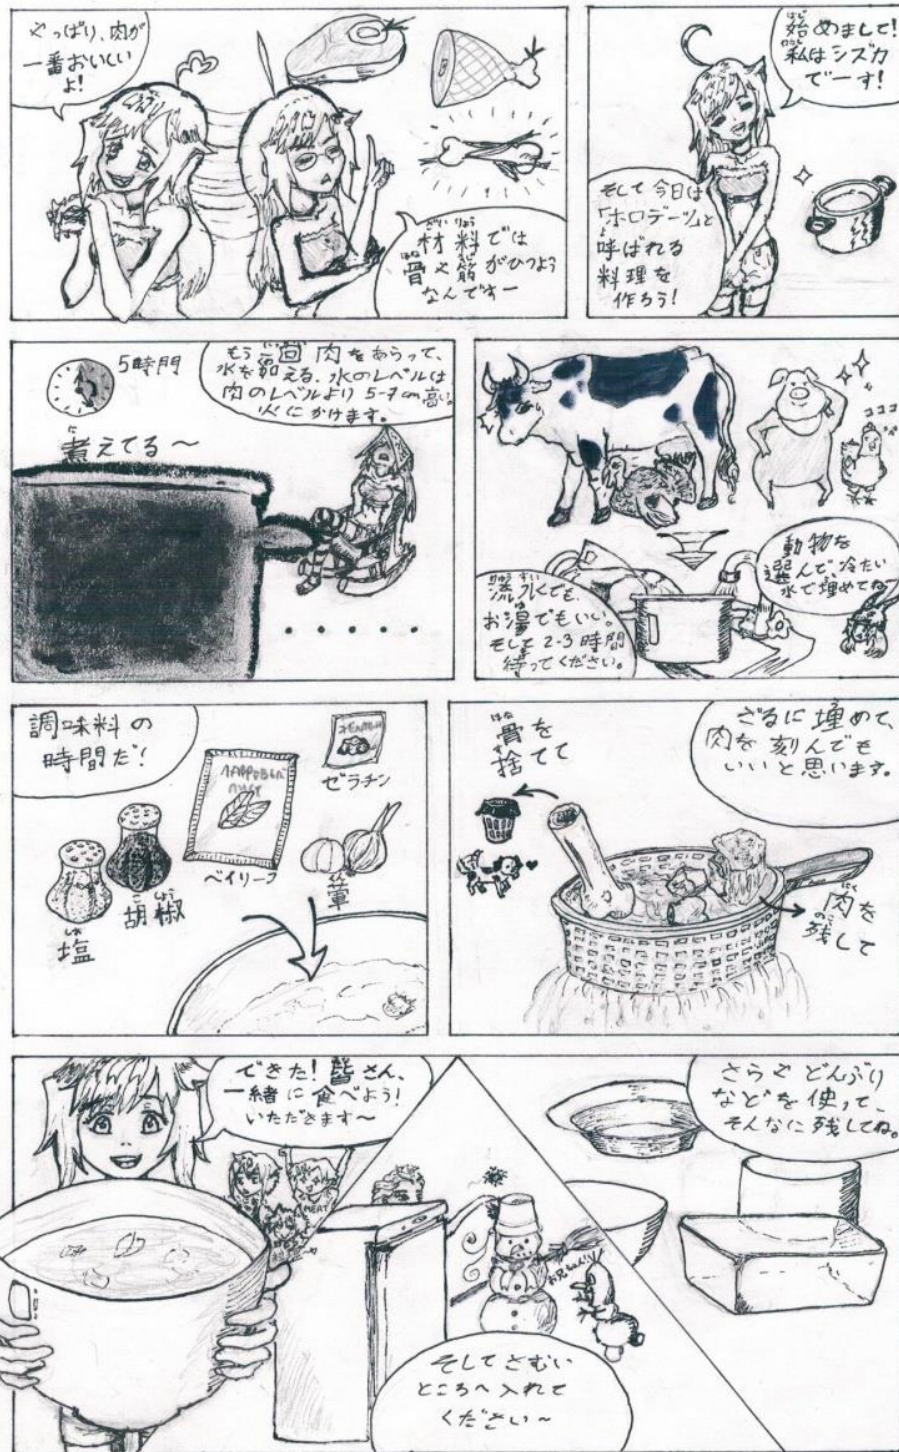 始めまして!
私はシズカ
でーす!
そして今日は
「ホロデーツ」と
呼ばれる
料理を
作ろう!
やっぱり、肉が
一番おいしい
よ!
材料では
骨と筋がひつよう
なんですー
動物を
選んで、冷たい
水で埋めてね
流水でも、
お湯でもいい。
そして2-3時間
待ってください。
コココ
5時間
もう一回肉をあらって、
水を加える。水のレベルは
肉のレベルより5-7cm高い。
火にかけます。
煮えてる〜
ざるに埋めて、
肉を刻んでも
いいと思います。
骨を
捨てて
肉を
残して
調味料の
時間だ!
ゼラチン
ベイリーフ
塩
胡椒
葷
さらやどんぶり
などを使って、
そんなに残してね。
そしてさむい
ところへ入れて
ください〜
お兄ちゃん!
できた!皆さん、
一緒に食べよう!
いただきます〜
MEAT